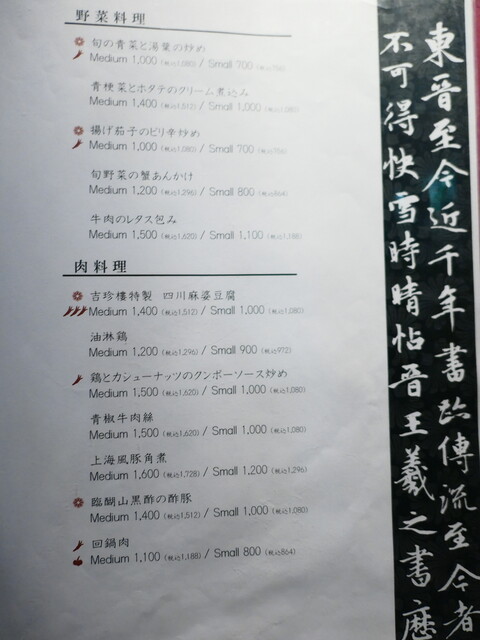 野菜料理
旬の青菜と湯葉の炒め
Medium 1,000（税込1,080）/ Small 700（税込756）
青梗菜とホタテのクリーム煮込み
Medium 1,400（税込1,512）/ Small 1,000（税込1,080）
揚げ茄子のピリ辛炒め
Medium 1,000（税込1,080）/ Small 700（税込756）
旬野菜の蟹あんかけ
Medium 1,200（税込1,296）/ Small 800（税込864）
牛肉のレタス包み
Medium 1,500（税込1,620）/ Small 1,100（税込1,188）
肉料理
吉珍樓特製 四川麻婆豆腐
Medium 1,400（税込1,512）/ Small 1,000（税込1,080）
油淋鶏
Medium 1,200（税込1,296）/ Small 900（税込972）
鶏とカシューナッツのクンポーソース炒め
Medium 1,500（税込1,620）/ Small 1,000（税込1,080）
青椒牛肉絲
Medium 1,500（税込1,620）/ Small 1,000（税込1,080）
上海風豚角煮
Medium 1,600（税込1,728）/ Small 1,200（税込1,296）
臨醐山黒酢の酢豚
Medium 1,400（税込1,512）/ Small 1,000（税込1,080）
回鍋肉
Medium 1,100（税込1,188）/ Small 800（税込864）
東晋至今近千年書跡傳流至今者
不可得快雪時晴帖晋王羲之書歴